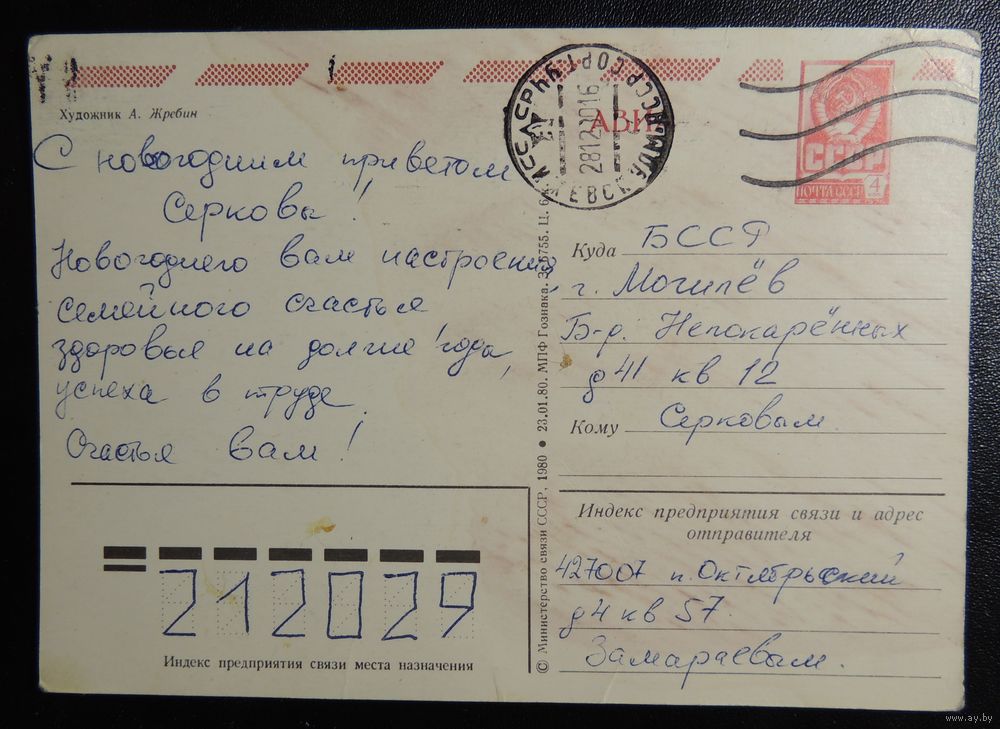 Художник А. Жребин
С новогодним приветом
Серковы!
Новогоднего вам настроения,
семейного счастья
здоровья на долгие годы,
успеха в труде
Счастья вам!
АВИ
СССР
ПОЧТА СССР
4
28122016
Куда БССР
г. Могилёв
Б-р. Непокарённых
д 41 кв 12
Кому Серковым
© Министерство связи СССР, 1980 • 23.01.80. МПФ Гознака. З. 6755. Ц. 6
Индекс предприятия связи и адрес
отправителя
427007 п. Октябрьский
д 4 кв 57
Замараевым.
212029
Индекс предприятия связи места назначения
www.ay.by